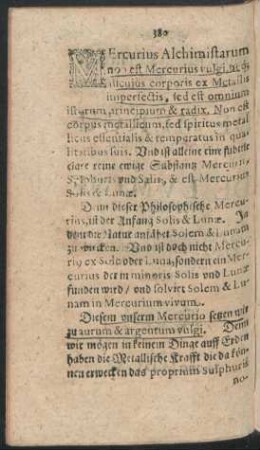 380
MErcurius Alchimistarum
non est Mercurius vulgi,
alicuius corporis ex Metallis
imperfectis, sed est omnium
istarum principium & radix. Non est
corpus metallicum, sed spiritus metal
licus essentialis & temperatus in qua
litatibus suis. Vnd ist alleine eine subtile
clare reine ewige Substantz Mercurii,
Sulphuris vnd Salis, & est Mercurius
Solis & Lunæ.
Dann dieser Philosophische Mercu-
rius, ist der Anfang Solis & Lunæ. In
dem die Natur anfähet Solem & Lunam
zu wircken. Vnd ist doch nicht Mercu-
rius ex Sole oder Luna, sondern ein Mer-
curius der in mineris Solis vnd Lunæ
funden wird / vnd solvirt Solem & Lu-
nam in Mercurium vivum.
Diesem vnserm Mercurio setzen wir
zu aurum & argentum vulgi. Denn
wir mögen in keinem Dinge auff Erden
haben die Metallische Krafft die da kön-
nen erwecken das proprium Sulphuris
no-